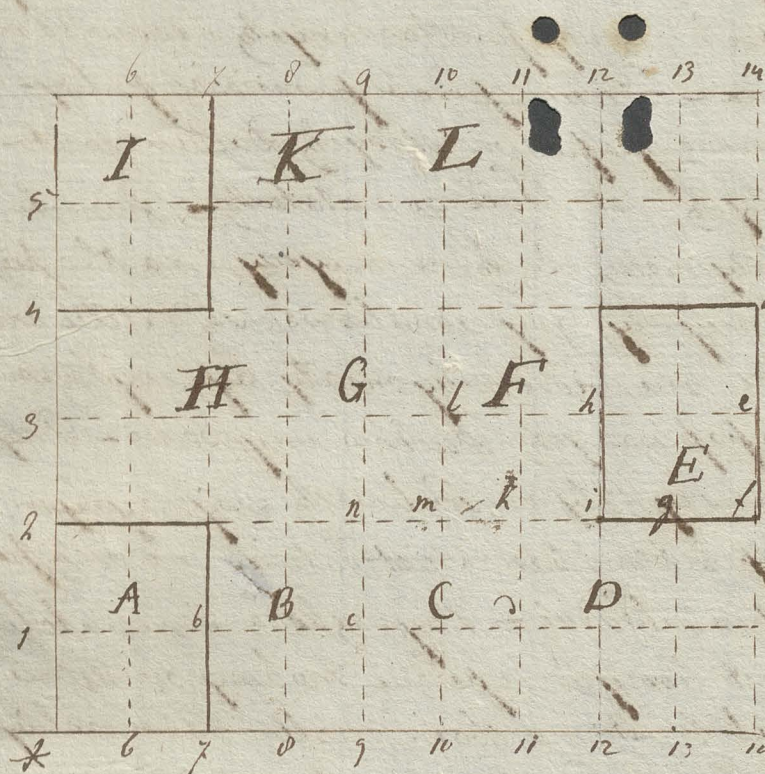 6 7 8 9 10 11 12 13 14
I K L
5
4
H G l F h e
3
E
2 n m k i g f
A b B c C D
1
6 7 8 9 10 11 12 13 14